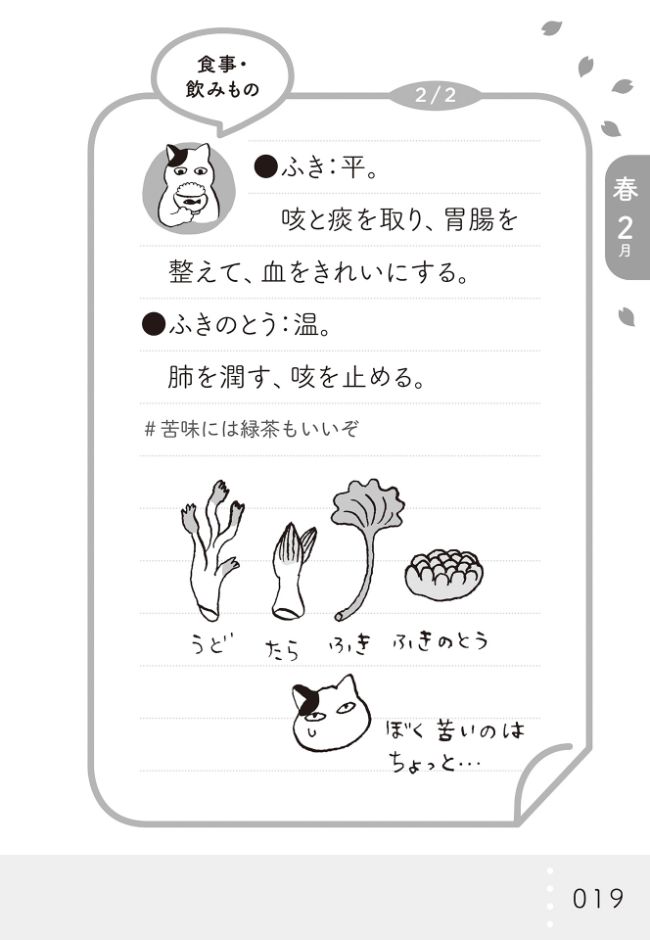 食事・
飲みもの
2/2
春
2
月
●ふき：平。
咳と痰を取り、胃腸を
整えて、血をきれいにする。
●ふきのとう：温。
肺を潤す、咳を止める。
#苦味には緑茶もいいぞ
うど たら ふき ふきのとう
ぼく苦いのは
ちょっと…
019